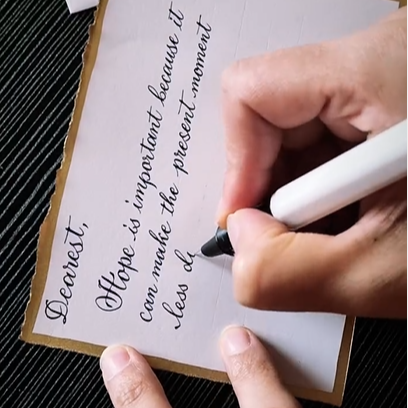 Dearest,
Hope is important because it
can make the present moment
less di